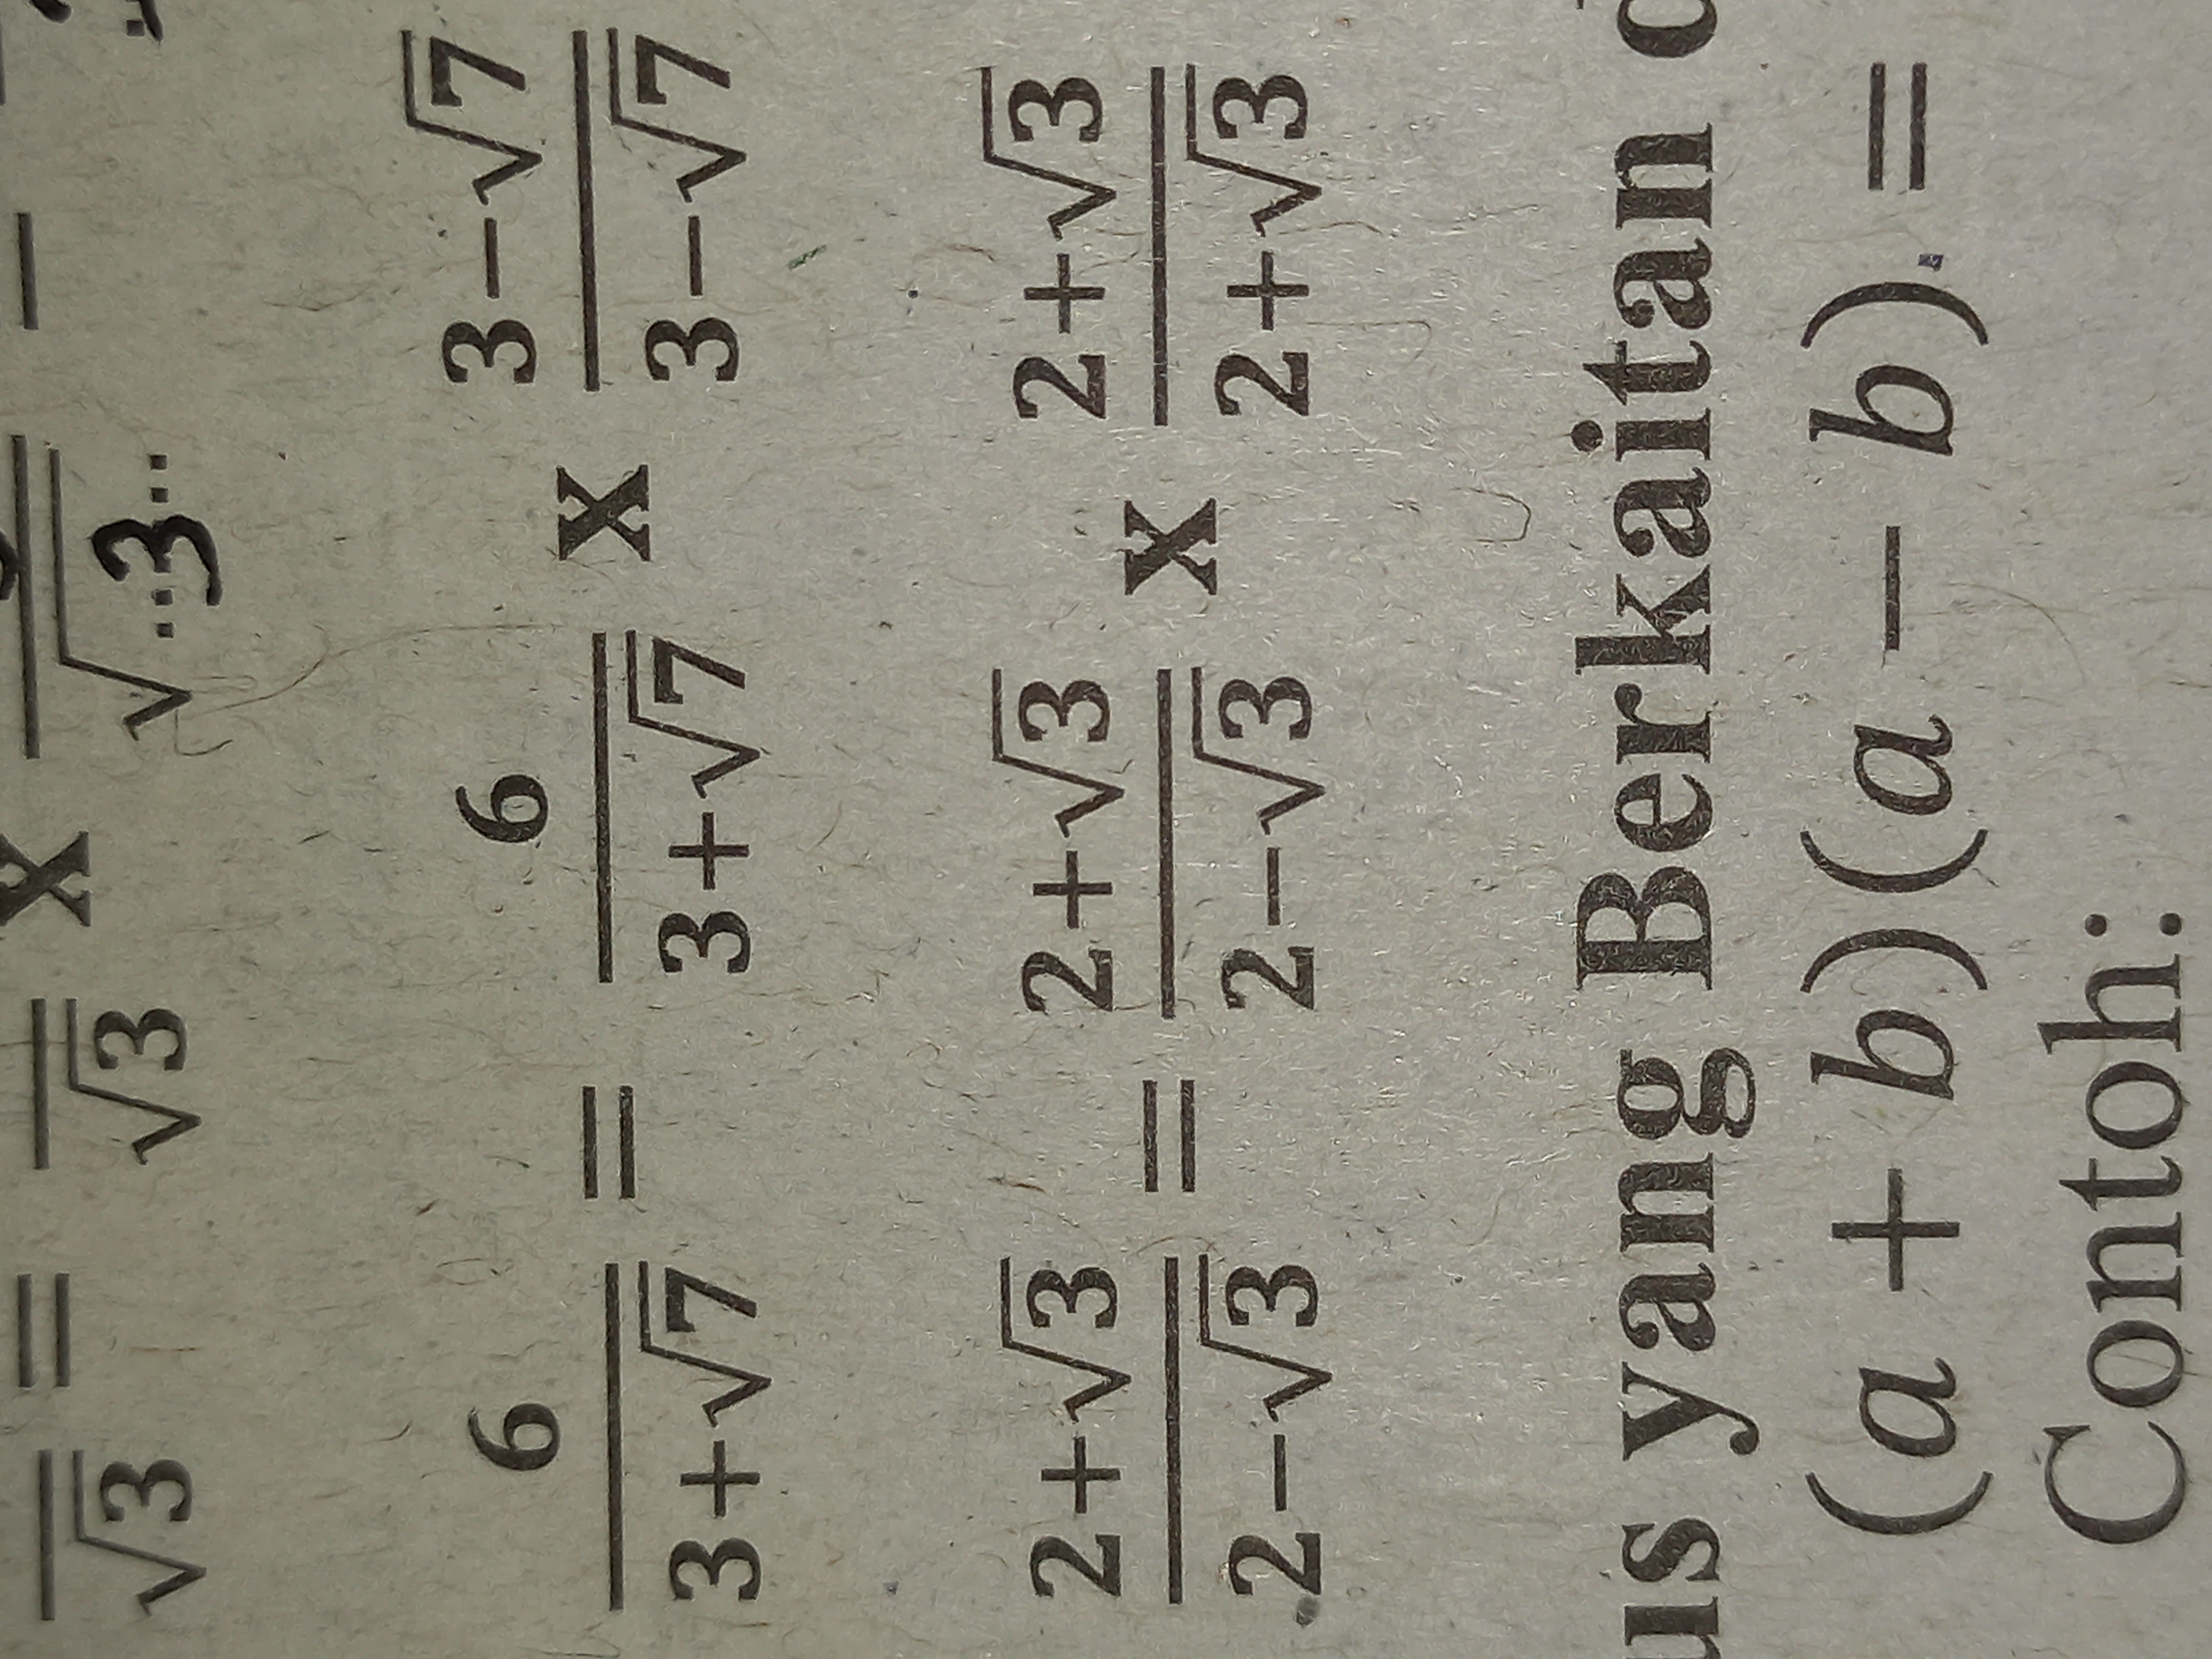 √3 = √3 x √...3... −
6/(3+√7) = 6/(3+√7) x (3−√7)/(3−√7)
(2+√3)/(2−√3) = (2+√3)/(2−√3) x (2+√3)/(2+√3)
us yang Berkaitan
(a + b)(a − b) =
Contoh: